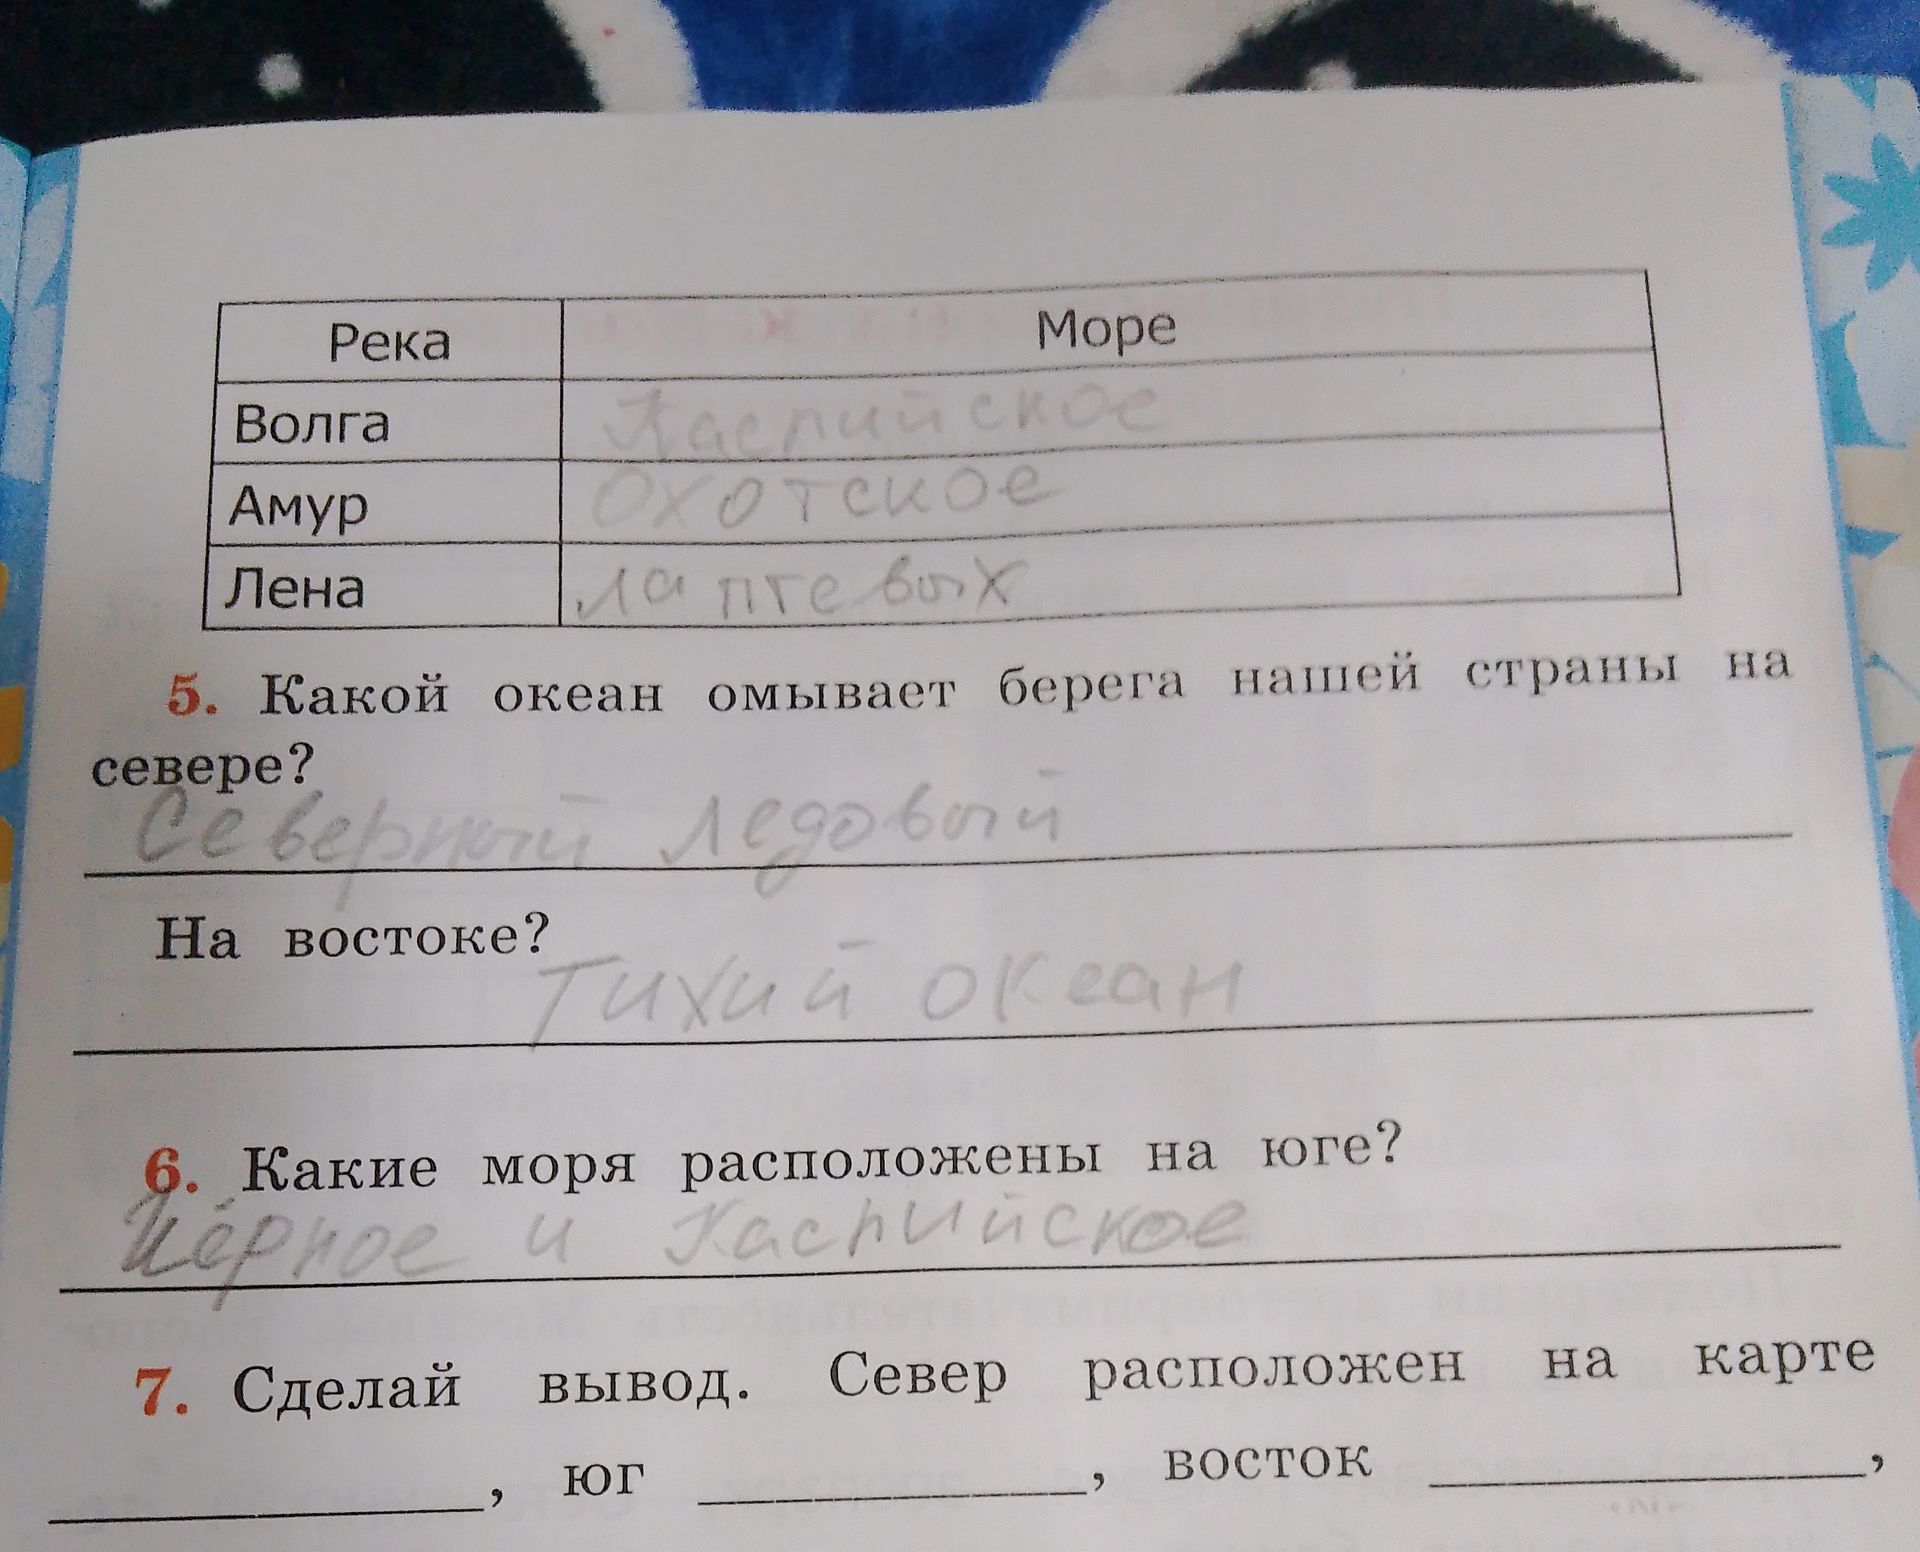 Река Море
Волга Каспийское
Амур Охотское
Лена лаптевых
5. Какой океан омывает берега нашей страны на
севере?
Северный ледовый
На востоке?
Тихий океан
6. Какие моря расположены на юге?
Чёрное и Каспийское
7. Сделай вывод. Север расположен на карте
, юг , восток ,